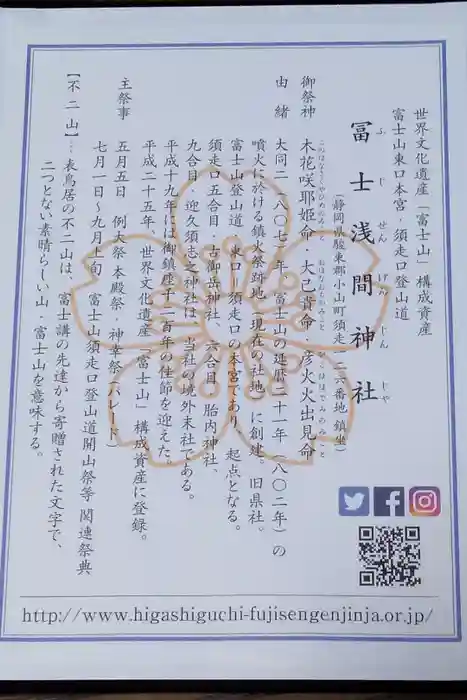 世界文化遺産「富士山」構成資産
富士山東口本宮・須走口登山道
冨士浅間神社
ふじせんげんじんじゃ
(静岡県駿東郡小山町須走一二六番地 鎮座)
御祭神 木花咲耶姫命・大己貴命・彦火火出見命
このはなさくやひめのみこと おほなむちのみこと ひこほほでみのみこと
由緒 大同二(八〇七)年、富士山の延暦二十一年(八〇二年)の
噴火に於ける鎮火祭跡地(現在の社地)に創建。旧県社。
富士山登山道 東口・須走口の本宮であり、起点となる。
須走口五合目・古御岳神社、六合目・胎内神社、
九合目・迎久須志之神社は、当社の境外末社である。
平成十九年には御鎮座千二百年の佳節を迎えた。
平成二十五年、世界文化遺産「富士山」構成資産に登録。
主祭事 五月五日 例大祭 本殿祭・神幸祭(パレード)
七月一日〜九月上旬 富士山須走口登山道開山祭等 関連祭典
【不二山】… 表鳥居の不二山は、富士講の先達から寄贈された文字で、
二つとない素晴らしい山・富士山を意味する。
http://www.higashiguchi-fujisengenjinja.or.jp/